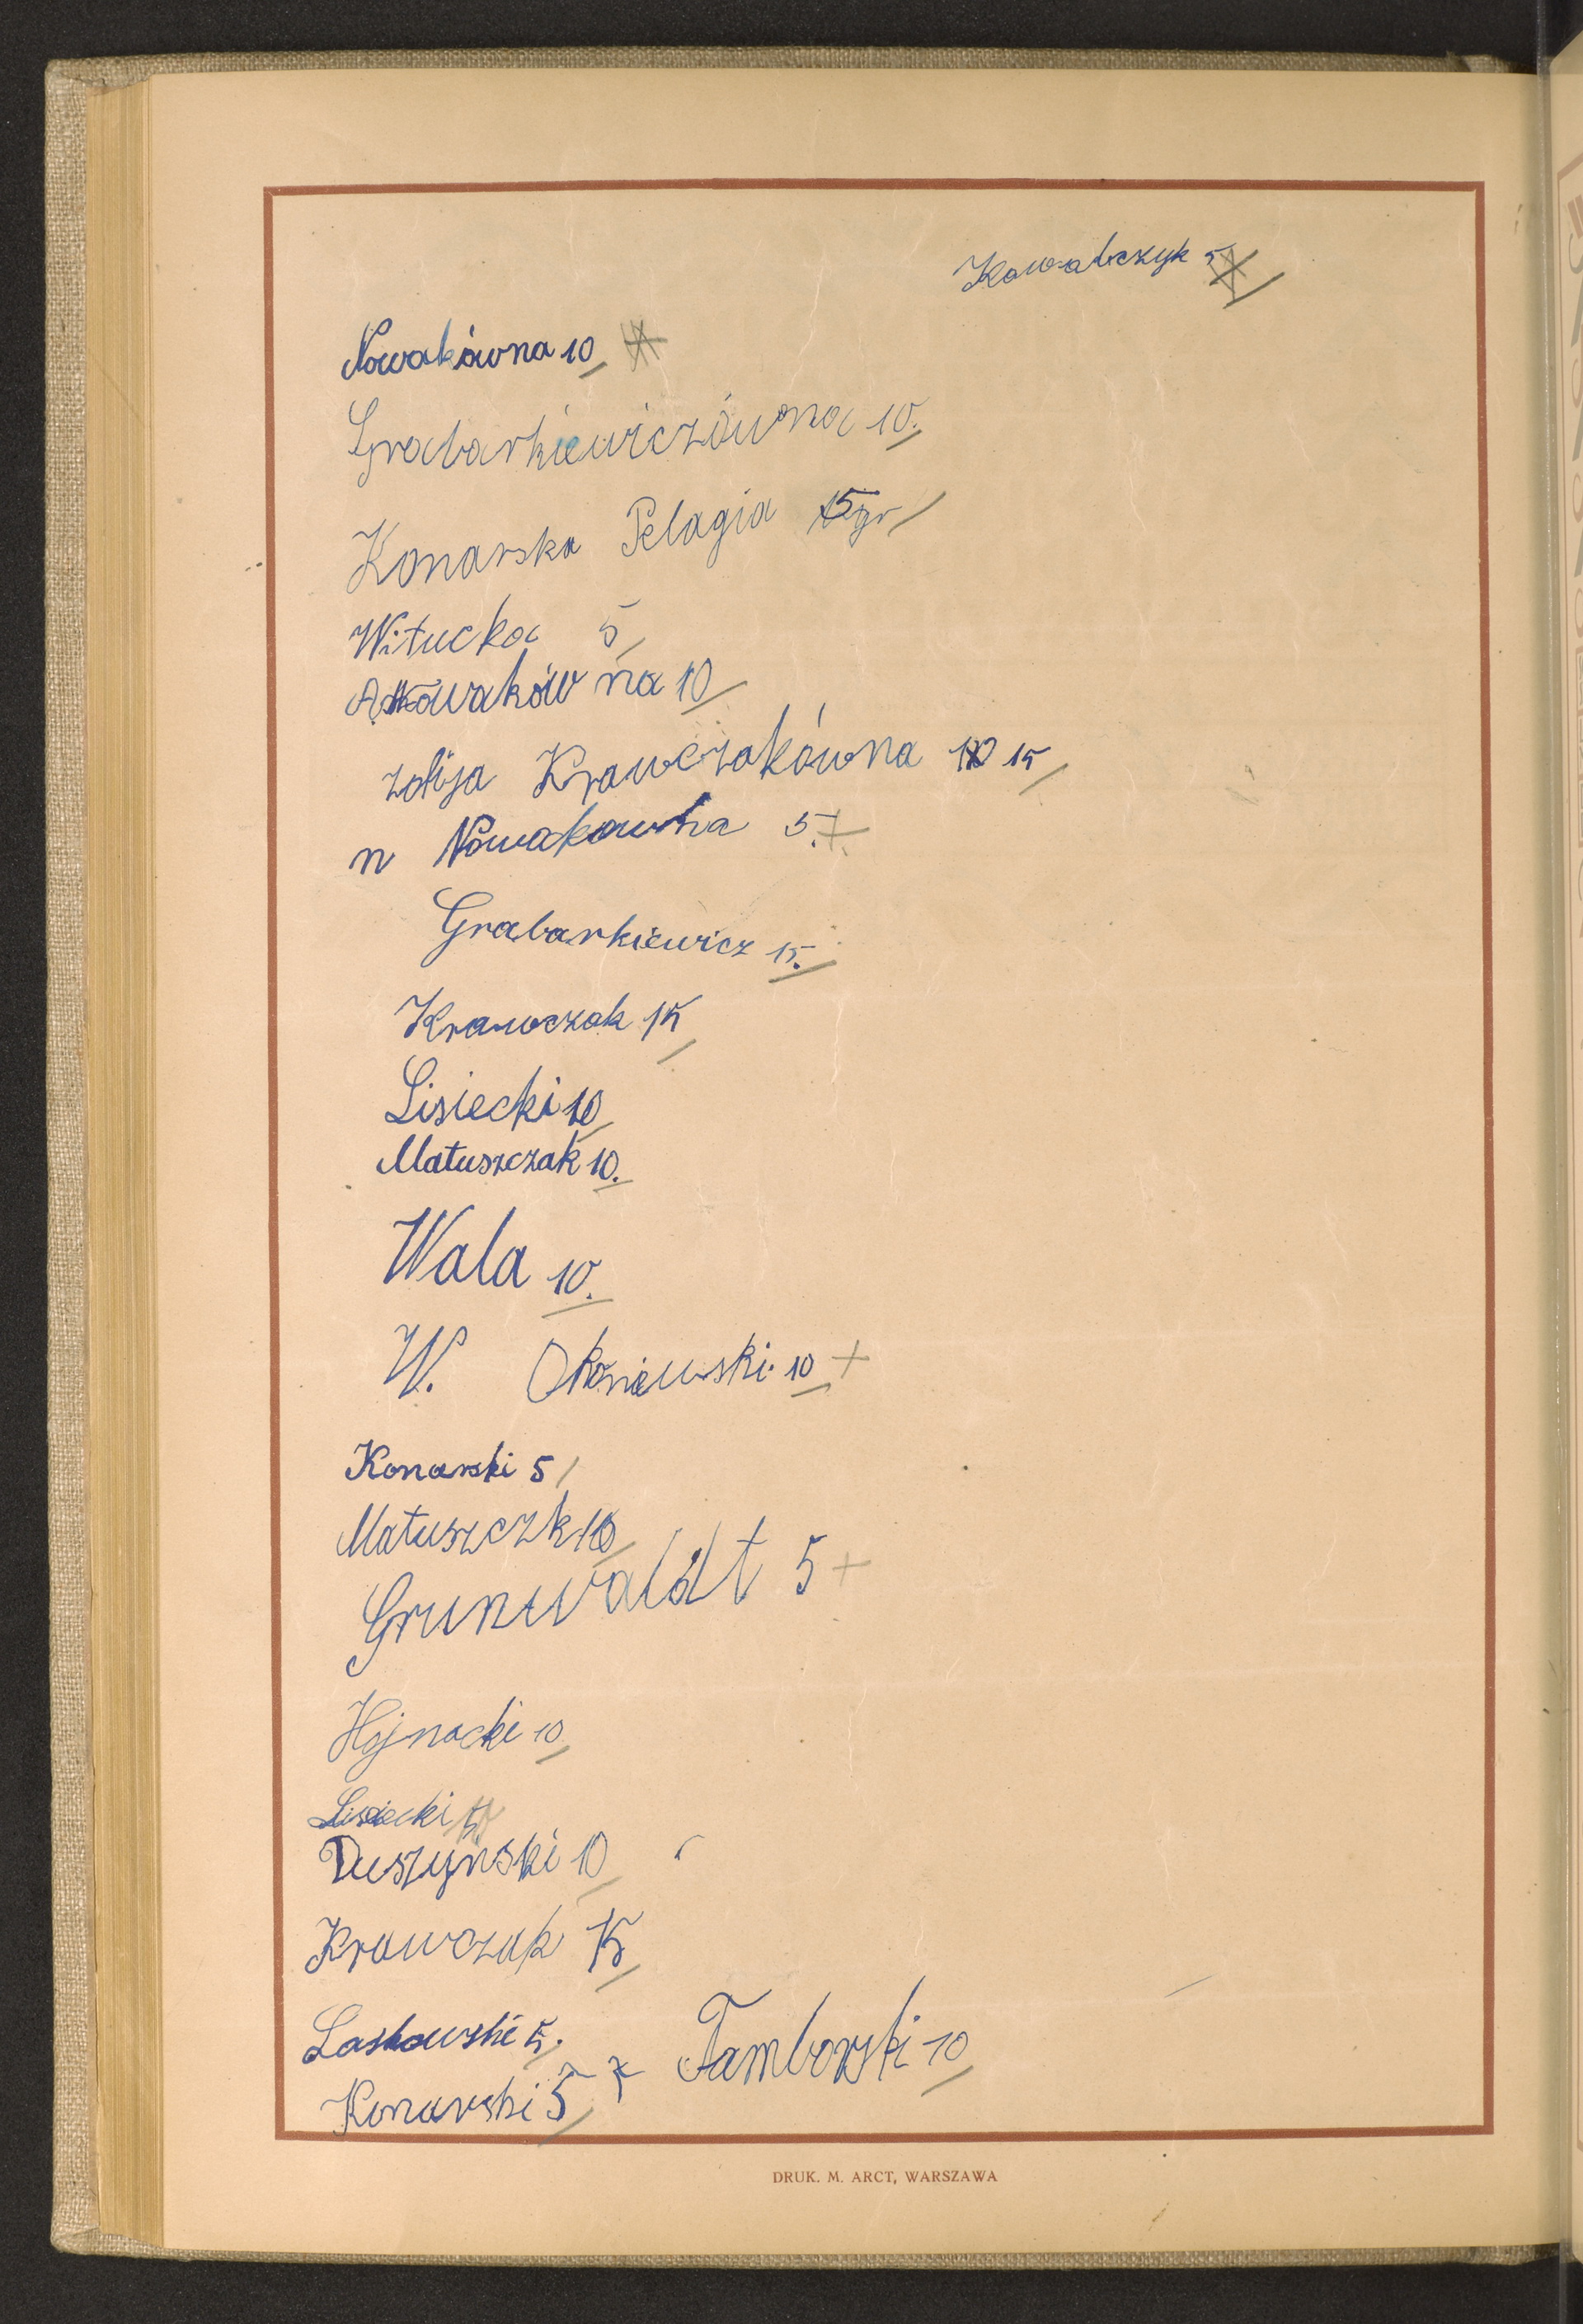 Kowalczyk 5
Nowakówna 10
Grabarkiewiczówna 10.
Konarska Pelagia 15gr
Witucka 5
Nowakówna 10
Zofija Krawczakówna 10 15
n Nowakowna 5.
Grabarkiewicz 15.
Krawczak 15
Lisiecki 10
Matuszczak 10.
Wala 10.
W. Okoniewski 10
Konarski 5
Matuszczk 10
Grunwaldt 5
Hojnacki 10
Lisiecki
Duszyński 10
Krawczak 15
Laskowski 5.
Konarski 5
Tamborski 10
DRUK. M. ARCT, WARSZAWA